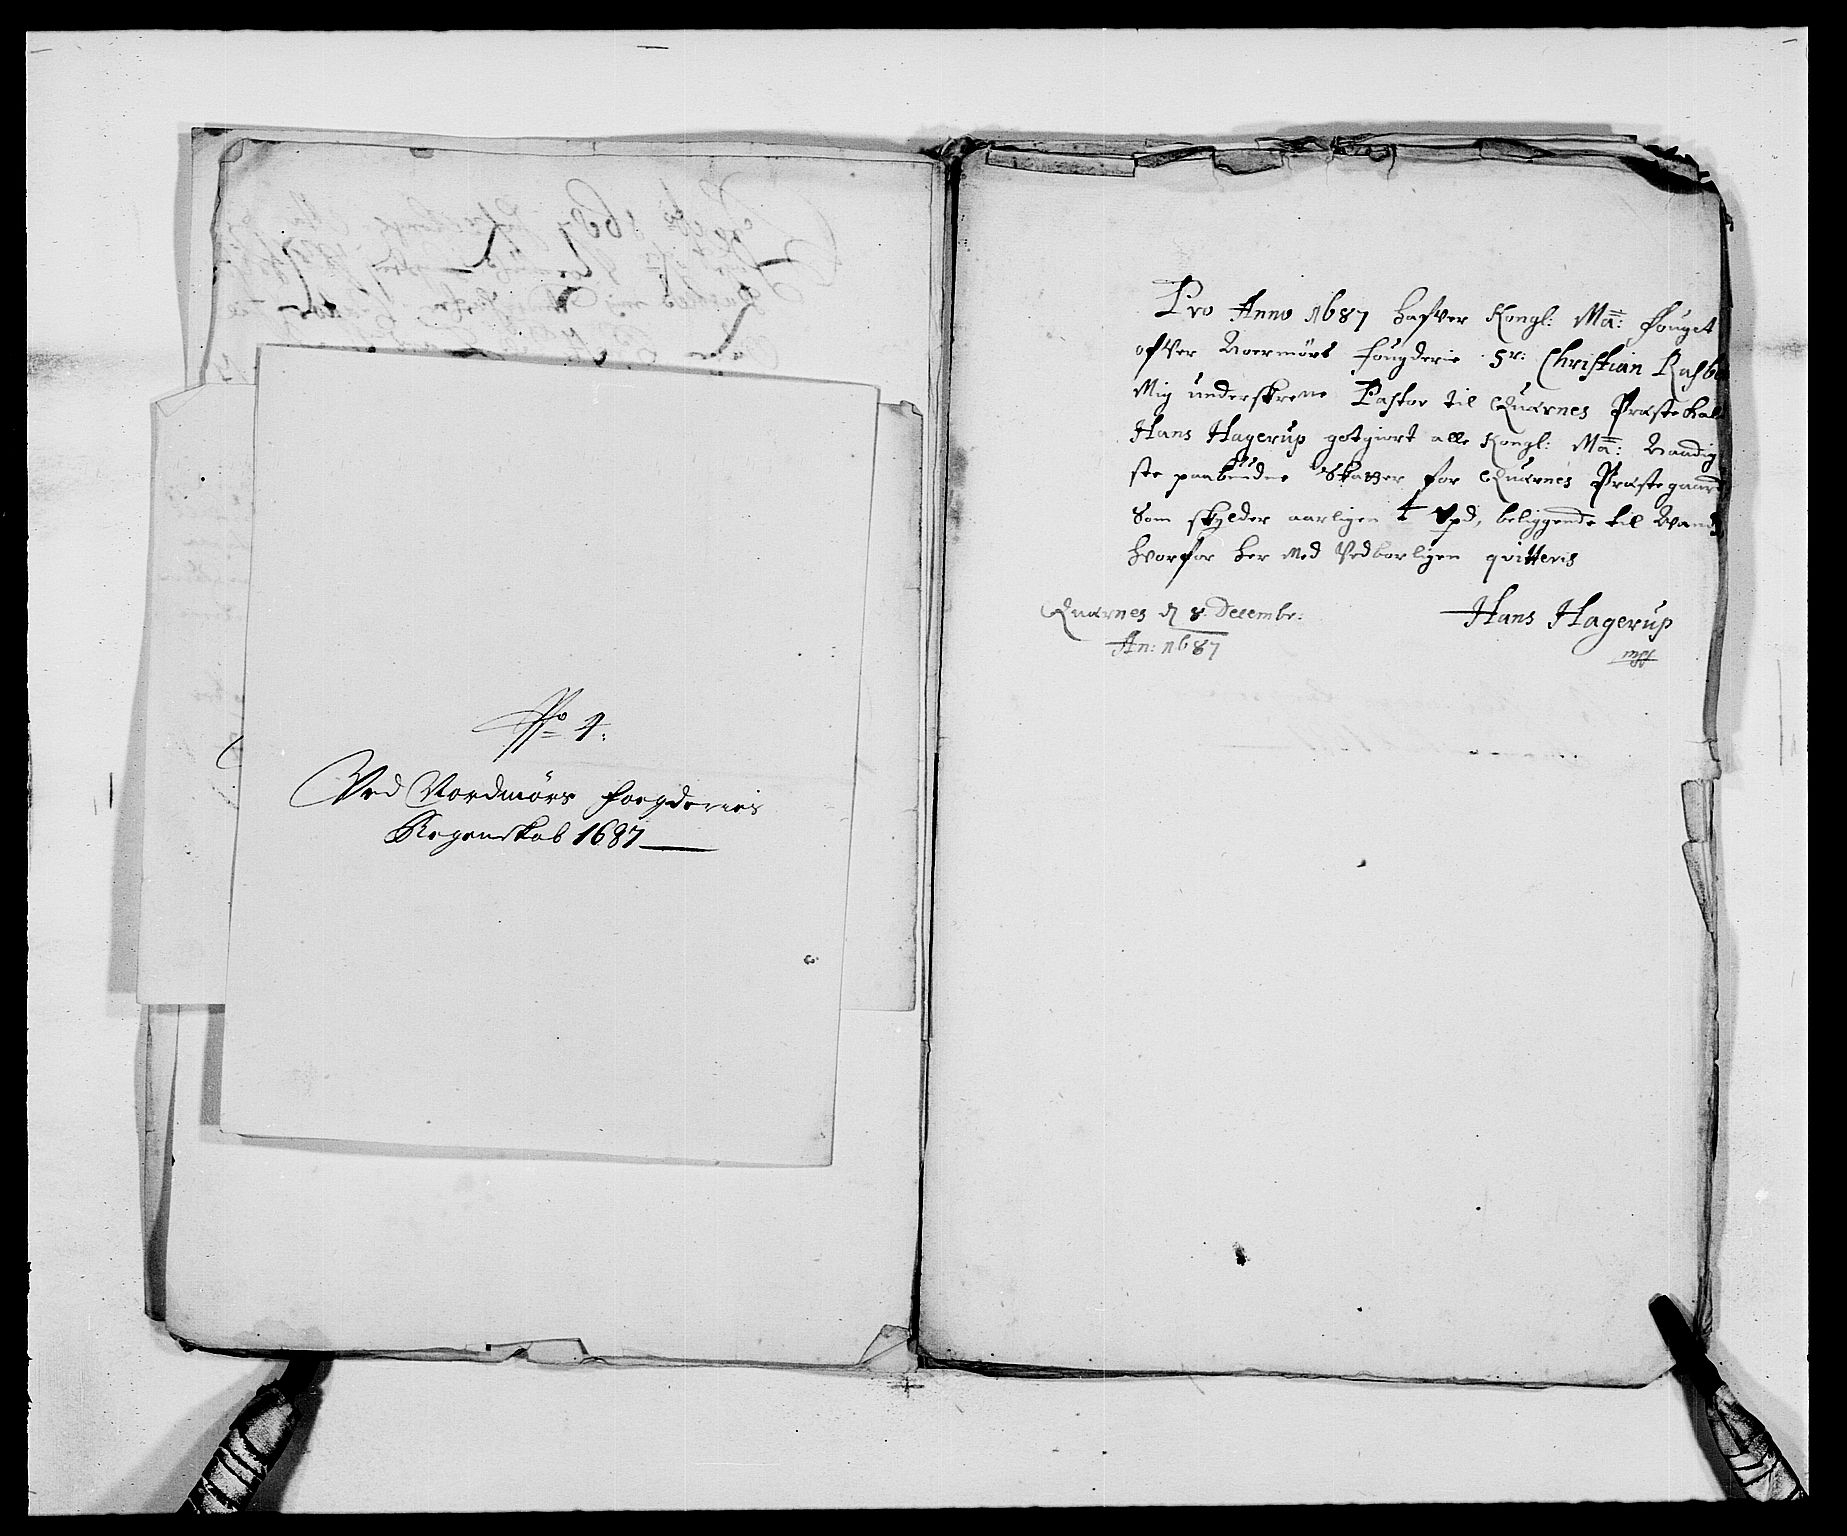 No 4:
Ved Nordmørs fogderies
Regenskob 1687
Pro Anno 1687 hafver Kongl: Ma: fouget
ofver Noermørs fougderie Sr: Christian Rasb
Mig underskrevne Pastor til Quærnes Præstekal
Hans Hagerup gotgiort alle Kongl: Ma: Naadig
ste paabudne Skatter for Quærnes Præstegaard
Som skylder aarligen 4 Vpd, beliggende til
hvorfor her med Vedborligen qvitteris
Quærnes d 8 Decembr:
An: 1687
Hans Hagerup
mpp